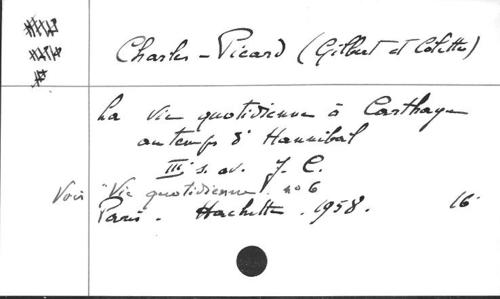 Charles-Picard (Gilbert et Colette)
La vie quotidienne à Carthage
au temps d'Hannibal
III s. av. J. C.
Voir "Vie quotidienne" n° 6
Paris. Hachette. 1958. 16